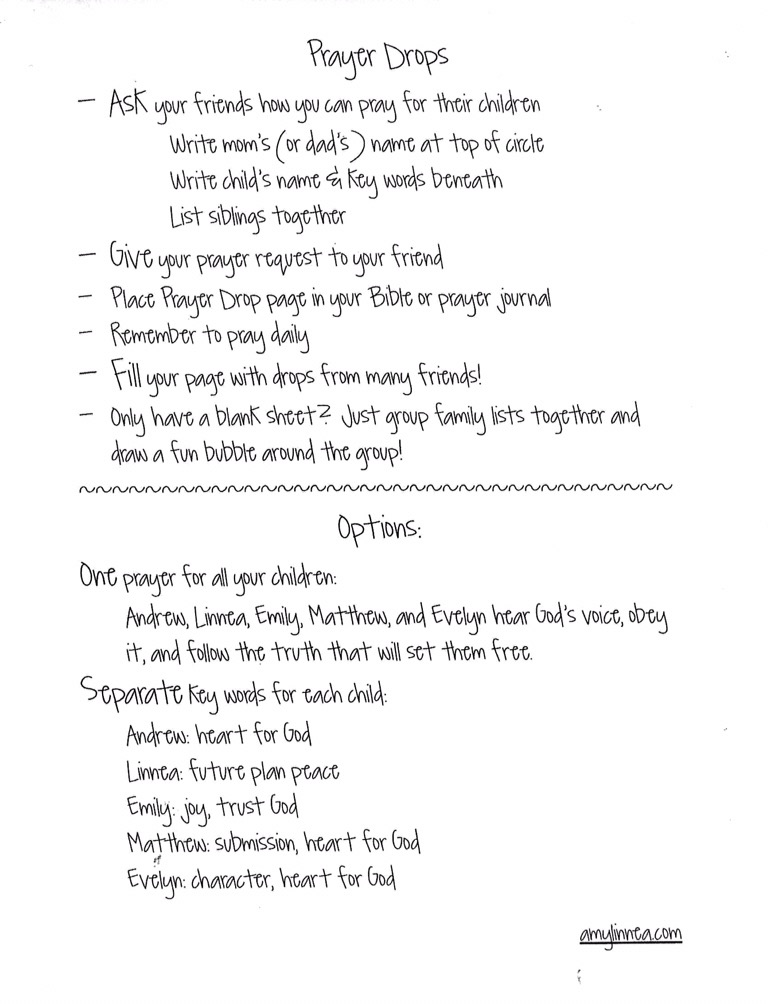 Prayer Drops
— Ask your friends how you can pray for their children
Write mom's (or dad's) name at top of circle
Write child's name & key words beneath
List siblings together
— Give your prayer request to your friend
— Place Prayer Drop page in your Bible or prayer journal
— Remember to pray daily
— Fill your page with drops from many friends!
— Only have a blank sheet? Just group family lists together and
draw a fun bubble around the group!
Options:
One prayer for all your children:
Andrew, Linnea, Emily, Matthew, and Evelyn hear God's voice, obey
it, and follow the truth that will set them free.
Separate key words for each child:
Andrew: heart for God
Linnea: future plan peace
Emily: joy, trust God
Matthew: submission, heart for God
Evelyn: character, heart for God
amylinnea.com